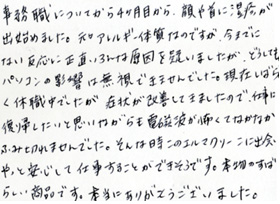 事務職についてから4ヶ月目から、顔や首に湿疹が
出始めました。元々アレルギー体質なのですが、今までに
ない反応に正直いろんな原因を疑いましたが、どうしても
パソコンの影響は無視できませんでした。現在しばら
く休職中でしたが症状が改善してきましたので、仕事に
復帰したいと思いながらも電磁波が怖くてなかなか
ふみ切れませんでした。そんな時このエルマクリーンに出会い
やっと安心して仕事することができそうです。本物のすば
らしい商品です。本当にありがとうございました。